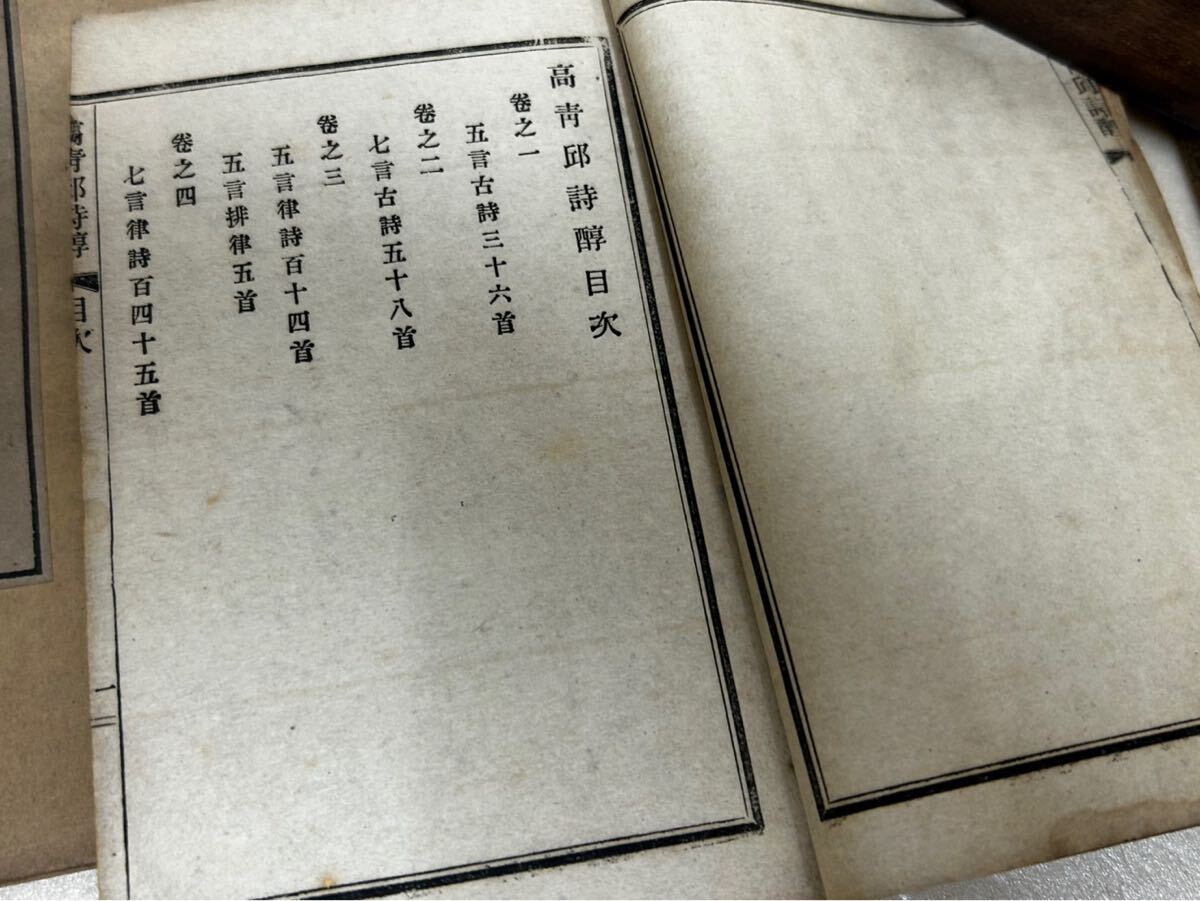 高靑邱詩醇目次
卷之一
五言古詩三十六首
卷之二
七言古詩五十八首
卷之三
五言律詩百十四首
五言排律五首
卷之四
七言律詩百四十五首
高靑邱詩醇 目次 一
邱詩醇